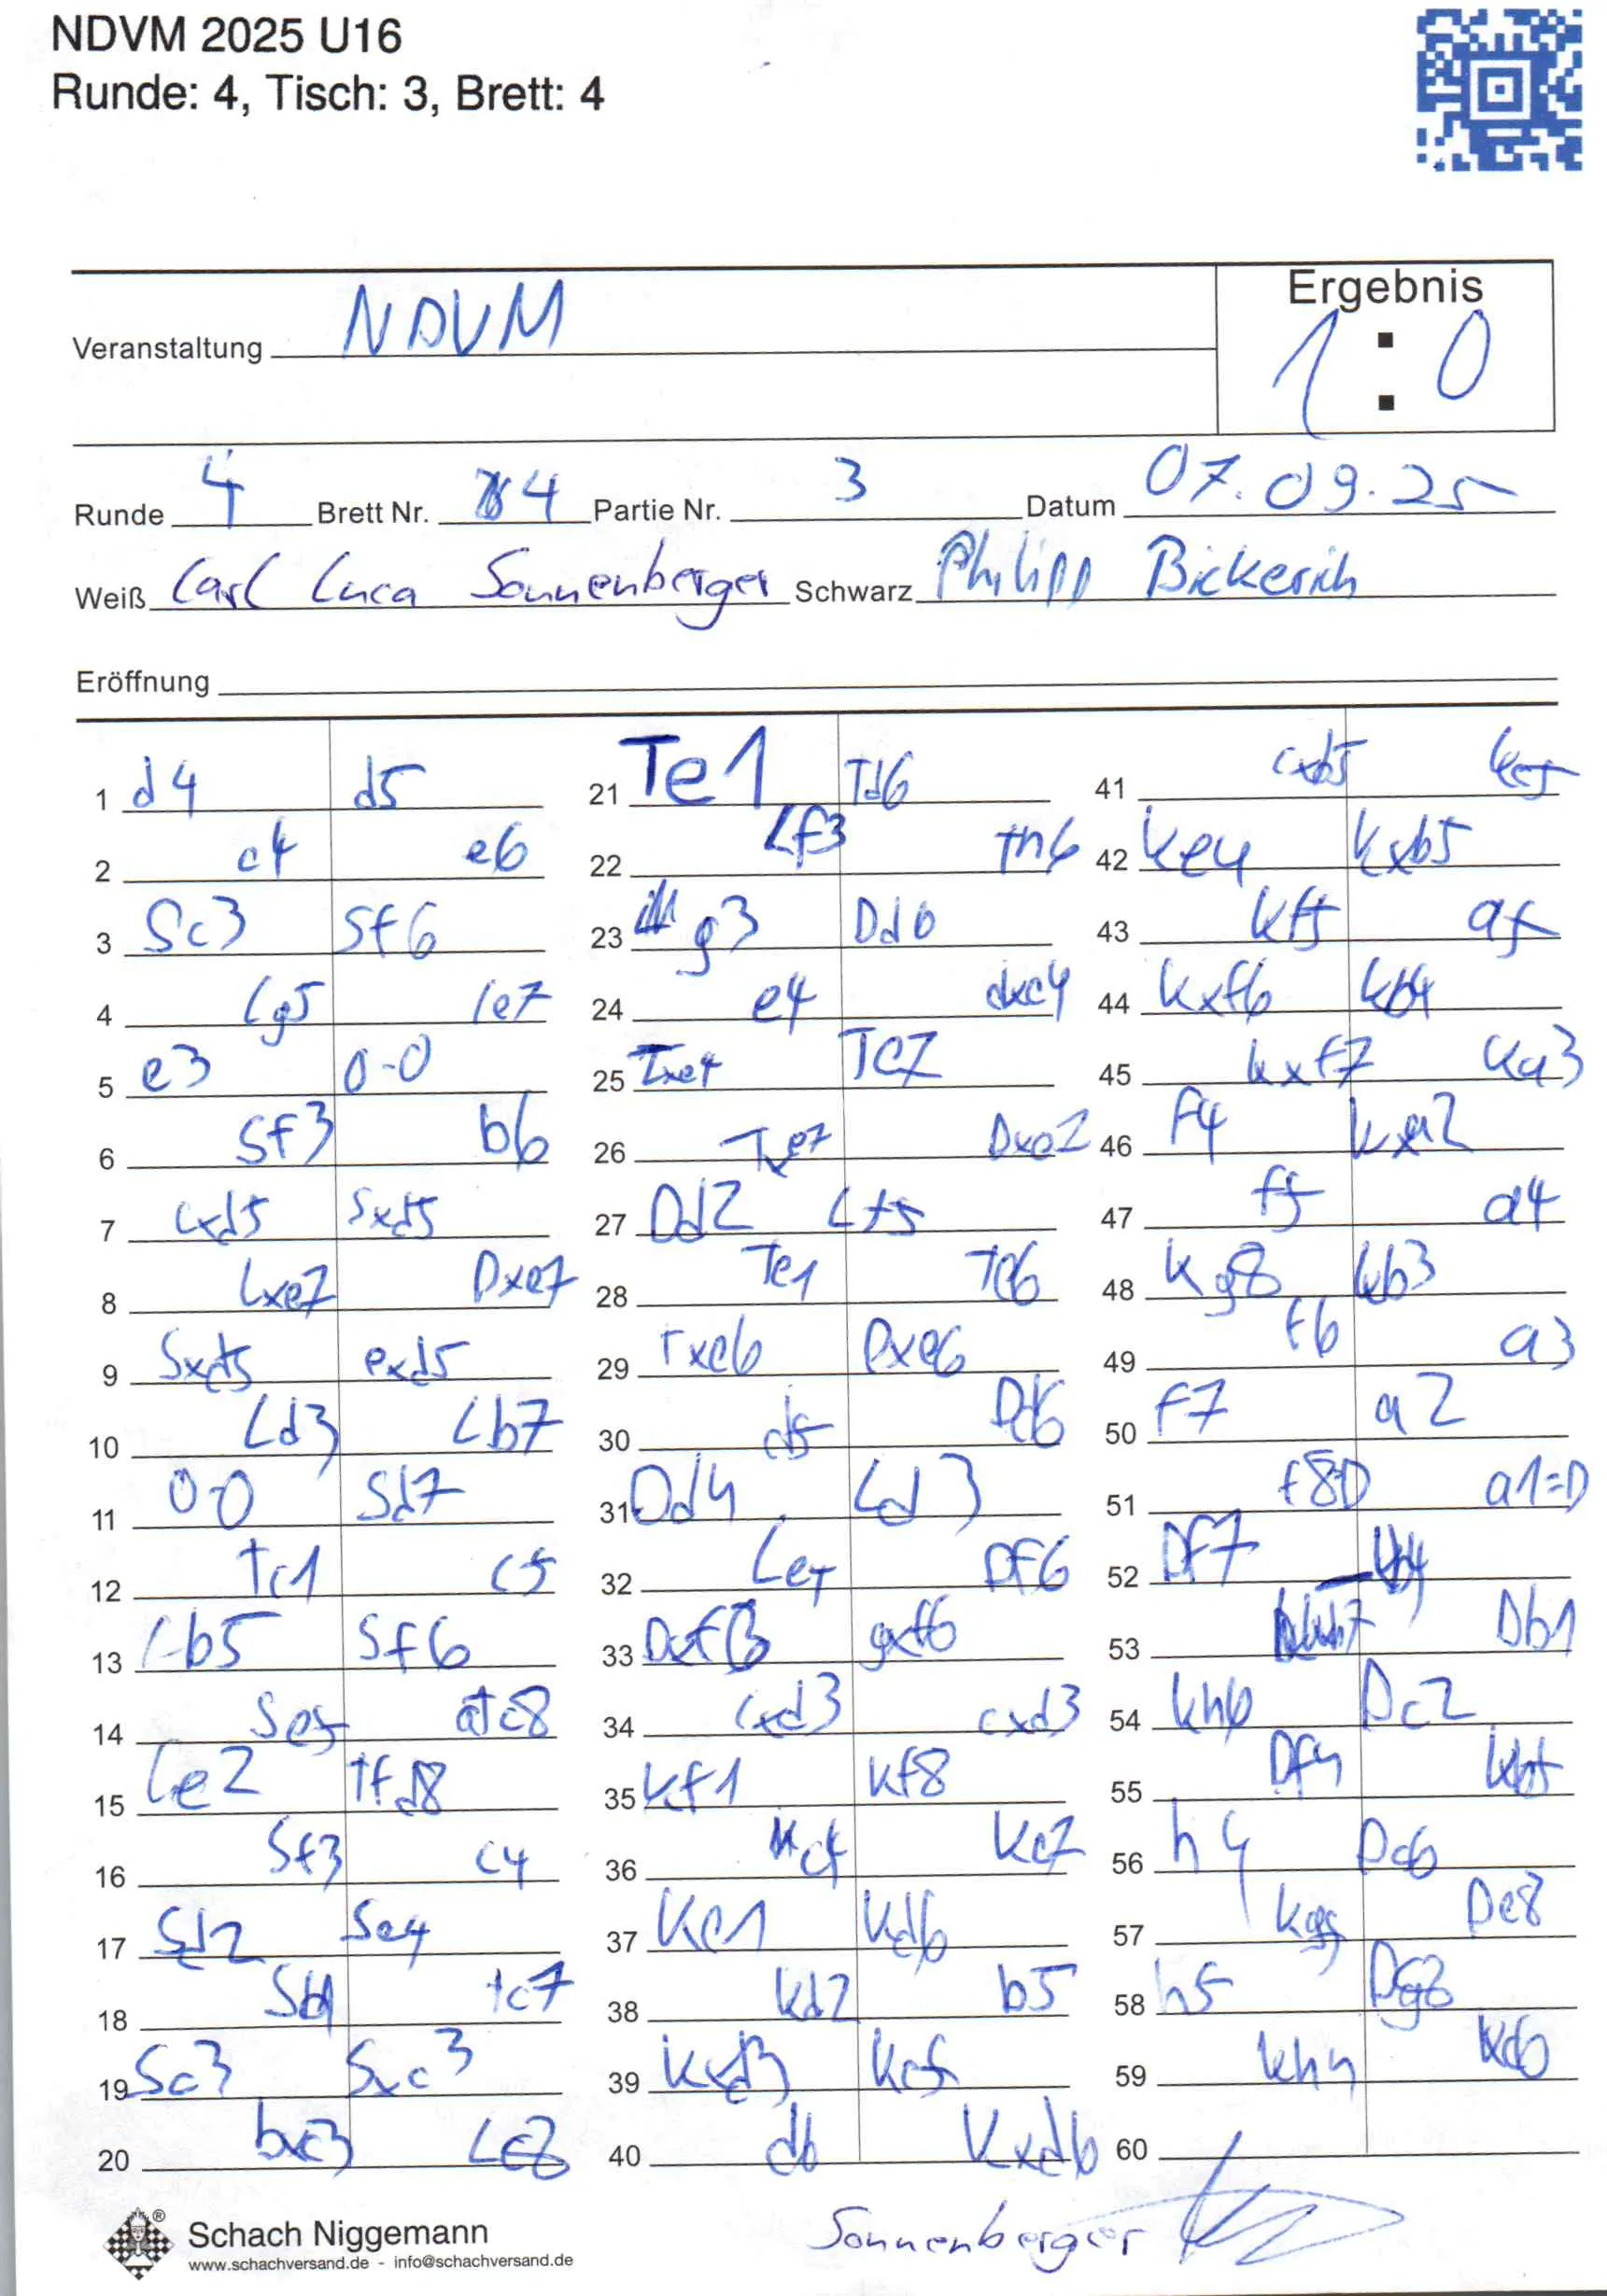 NDVM 2025 U16
Runde: 4, Tisch: 3, Brett: 4
Ergebnis
Veranstaltung NDVM
1 : 0
Runde 4 Brett Nr. 4 Partie Nr. 3 Datum 07.09.25
Weiß Carl Luca Sonnenberger Schwarz Philipp Bickerich
Eröffnung
1 d4 d5
2 c4 e6
3 Sc3 Sf6
4 Lg5 le7
5 e3 0-0
6 Sf3 b6
7 cxd5 Sxd5
8 Lxe7 Dxe7
9 Sxd5 exd5
10 Ld3 Lb7
11 0-0 Sd7
12 Tc1 c5
13 Lb5 Sf6
14 Se5 aTc8
15 Le2 Tfd8
16 Sf3 c4
17 Sd2 Se4
18 Sb1 tc7
19 Sc3 Sxc3
20 bxc3 Lc8
21 Te1 Td6
22 Lf3 th6
23 g3 Dd6
24 e4 dxe4
25 Txe4 Te7
26 Txe7 Dxe7
27 Dd2 Lf5
28 Te1 Te6
29 Txe6 Dxe6
30 d5 Dd6
31 Dd4 Ld3
32 Le4 Df6
33 Dxf6 gxf6
34 Lxd3 cxd3
35 Kf1 Kf8
36 c4 Ke7
37 Ke1 Kd6
38 Kd2 b5
39 Kxd3 Kc5
40 d6 Kxd6
41 cxb5 Kc5
42 Ke4 Kxb5
43 Kf5 a5
44 Kxf6 Kb4
45 Kxf7 Ka3
46 f4 Kxa2
47 f5 a4
48 Kg8 Kb3
49 f6 a3
50 f7 a2
51 f8D a1=D
52 Df7 Kb4
53 Db1
54 Kh6 Dc2
55 Df4 Kb5
56 h4 Dc6
57 Kg5 De8
58 h5 Dg8
59 Kh4 Kc6
60
Sonnenberger
Schach Niggemann
www.schachversand.de - info@schachversand.de